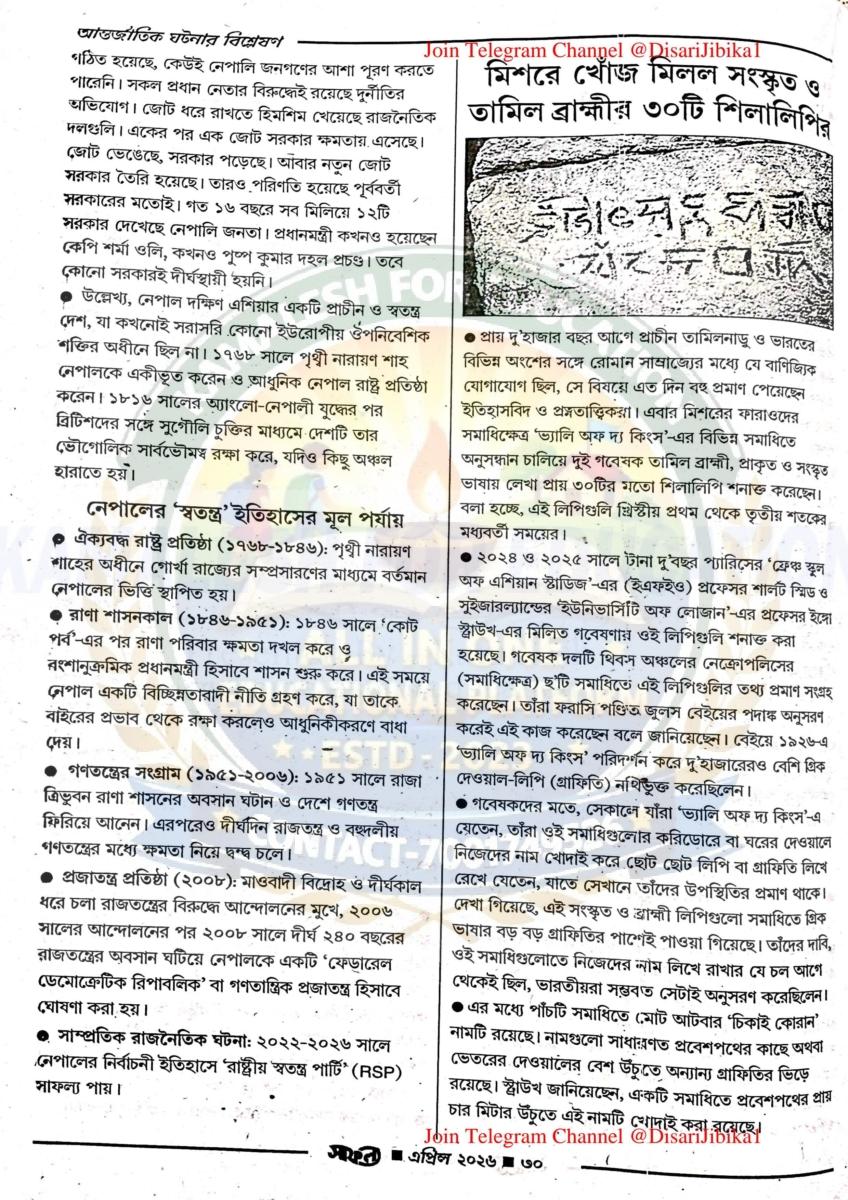 আন্তর্জাতিক ঘটনার বিশ্লেষণ
Join Telegram Channel @DisariJibika1
গঠিত হয়েছে, কেউই নেপালি জনগণের আশা পূরণ করতে
পারেনি। সকল প্রধান নেতার বিরুদ্ধেই রয়েছে দুর্নীতির
অভিযোগ। জোট ধরে রাখতে হিমশিম খেয়েছে রাজনৈতিক
দলগুলি। একের পর এক জোট সরকার ক্ষমতায় এসেছে।
জোট ভেঙেছে, সরকার পড়েছে। আবার নতুন জোট
সরকার তৈরি হয়েছে। তারও পরিণতি হয়েছে পূর্ববর্তী
সরকারের মতোই। গত ১৬ বছরে সব মিলিয়ে ১২টি
সরকার দেখেছে নেপালি জনতা। প্রধানমন্ত্রী কখনও হয়েছেন
কেপি শর্মা ওলি, কখনও পুষ্প কুমার দহল প্রচণ্ড। তবে
কোনো সরকারই দীর্ঘস্থায়ী হয়নি।
● উল্লেখ্য, নেপাল দক্ষিণ এশিয়ার একটি প্রাচীন ও স্বতন্ত্র
দেশ, যা কখনোই সরাসরি কোনো ইউরোপীয় ঔপনিবেশিক
শক্তির অধীনে ছিল না। ১৭৬৮ সালে পৃথ্বী নারায়ণ শাহ
নেপালকে একীভূত করেন ও আধুনিক নেপাল রাষ্ট্র প্রতিষ্ঠা
করেন। ১৮১৬ সালের অ্যাংলো-নেপালী যুদ্ধের পর
ব্রিটিশদের সঙ্গে সুগৌলি চুক্তির মাধ্যমে দেশটি তার
ভৌগোলিক সার্বভৌমত্ব রক্ষা করে, যদিও কিছু অঞ্চল
হারাতে হয়।
নেপালের 'স্বতন্ত্র' ইতিহাসের মূল পর্যায়
● ঐক্যবদ্ধ রাষ্ট্র প্রতিষ্ঠা (১৭৬৮-১৮৪৬): পৃথ্বী নারায়ণ
শাহের অধীনে গোর্খা রাজ্যের সম্প্রসারণের মাধ্যমে বর্তমান
নেপালের ভিত্তি স্থাপিত হয়।
● রাণা শাসনকাল (১৮৪৬-১৯৫১): ১৮৪৬ সালে 'কোট
পর্ব'-এর পর রাণা পরিবার ক্ষমতা দখল করে ও
বংশানুক্রমিক প্রধানমন্ত্রী হিসাবে শাসন শুরু করে। এই সময়ে
নেপাল একটি বিচ্ছিন্নতাবাদী নীতি গ্রহণ করে, যা তাকে
বাইরের প্রভাব থেকে রক্ষা করলেও আধুনিকীকরণে বাধা
দেয়।
● গণতন্ত্রের সংগ্রাম (১৯৫১-২০০৬): ১৯৫১ সালে রাজা
ত্রিভুবন রাণা শাসনের অবসান ঘটান ও দেশে গণতন্ত্র
ফিরিয়ে আনেন। এরপরেও দীর্ঘদিন রাজতন্ত্র ও বহুদলীয়
গণতন্ত্রের মধ্যে ক্ষমতা নিয়ে দ্বন্দ্ব চলে।
● প্রজাতন্ত্র প্রতিষ্ঠা (২০০৮): মাওবাদী বিদ্রোহ ও দীর্ঘকাল
ধরে চলা রাজতন্ত্রের বিরুদ্ধে আন্দোলনের মুখে, ২০০৬
সালের আন্দোলনের পর ২০০৮ সালে দীর্ঘ ২৪০ বছরের
রাজতন্ত্রের অবসান ঘটিয়ে নেপালকে একটি 'ফেডারেল
ডেমোক্রেটিক রিপাবলিক' বা গণতান্ত্রিক প্রজাতন্ত্র হিসাবে
ঘোষণা করা হয়।
● সাম্প্রতিক রাজনৈতিক ঘটনা: ২০২২-২০২৬ সালে
নেপালের নির্বাচনী ইতিহাসে 'রাষ্ট্রীয় স্বতন্ত্র পার্টি' (RSP)
সাফল্য পায়।
মিশরে খোঁজ মিলল সংস্কৃত ও
তামিল ব্রাহ্মীর ৩০টি শিলালিপির
● প্রায় দু'হাজার বছর আগে প্রাচীন তামিলনাড়ু ও ভারতের
বিভিন্ন অংশের সঙ্গে রোমান সাম্রাজ্যের মধ্যে যে বাণিজ্যিক
যোগাযোগ ছিল, সে বিষয়ে এত দিন বহু প্রমাণ পেয়েছেন
ইতিহাসবিদ ও প্রত্নতাত্ত্বিকরা। এবার মিশরের ফারাওদের
সমাধিক্ষেত্র 'ভ্যালি অফ দ্য কিংস'-এর বিভিন্ন সমাধিতে
অনুসন্ধান চালিয়ে দুই গবেষক তামিল ব্রাহ্মী, প্রাকৃত ও সংস্কৃত
ভাষায় লেখা প্রায় ৩০টির মতো শিলালিপি শনাক্ত করেছেন।
বলা হচ্ছে, এই লিপিগুলি খ্রিস্টীয় প্রথম থেকে তৃতীয় শতকের
মধ্যবর্তী সময়ের।
● ২০২৪ ও ২০২৫ সালে টানা দু'বছর প্যারিসের 'ফ্রেঞ্চ স্কুল
অফ এশিয়ান স্টাডিজ'-এর (ইএফইও) প্রফেসর শার্লট স্মিড ও
সুইজারল্যান্ডের 'ইউনিভার্সিটি অফ লোজান'-এর প্রফেসর ইঙ্গো
স্ট্রাউখ-এর মিলিত গবেষণায় ওই লিপিগুলি শনাক্ত করা
হয়েছে। গবেষক দলটি থিবস অঞ্চলের নেক্রোপলিসের
(সমাধিক্ষেত্র) ছ'টি সমাধিতে এই লিপিগুলির তথ্য প্রমাণ সংগ্রহ
করেছেন। তাঁরা ফরাসি পণ্ডিত জুলস বেইয়ের পদাঙ্ক অনুসরণ
করেই এই কাজ করেছেন বলে জানিয়েছেন। বেইয়ে ১৯২৬-এ
'ভ্যালি অফ দ্য কিংস' পরিদর্শন করে দু'হাজারেরও বেশি গ্রিক
দেওয়াল-লিপি (গ্রাফিতি) নথিভুক্ত করেছিলেন।
● গবেষকদের মতে, সেকালে যাঁরা 'ভ্যালি অফ দ্য কিংস'-এ
যেতেন, তাঁরা ওই সমাধিগুলোর করিডোরে বা ঘরের দেওয়ালে
নিজেদের নাম খোদাই করে ছোট ছোট লিপি বা গ্রাফিতি লিখে
রেখে যেতেন, যাতে সেখানে তাঁদের উপস্থিতির প্রমাণ থাকে।
দেখা গিয়েছে, এই সংস্কৃত ও ব্রাহ্মী লিপিগুলো সমাধিতে গ্রিক
ভাষার বড় বড় গ্রাফিতির পাশেই পাওয়া গিয়েছে। তাঁদের দাবি,
ওই সমাধিগুলোতে নিজেদের নাম লিখে রাখার যে চল আগে
থেকেই ছিল, ভারতীয়রা সম্ভবত সেটাই অনুসরণ করেছিলেন।
● এর মধ্যে পাঁচটি সমাধিতে মোট আটবার 'চিকাই কোরান'
নামটি রয়েছে। নামগুলো সাধারণত প্রবেশপথের কাছে অথবা
ভেতরের দেওয়ালের বেশ উঁচুতে অন্যান্য গ্রাফিতির ভিড়ে
রয়েছে। স্ট্রাউখ জানিয়েছেন, একটি সমাধিতে প্রবেশপথের প্রায়
চার মিটার উঁচুতে এই নামটি খোদাই করা রয়েছে।
Join Telegram Channel @DisariJibika1
সাফল্য ■ এপ্রিল ২০২৬ ■ ৩০